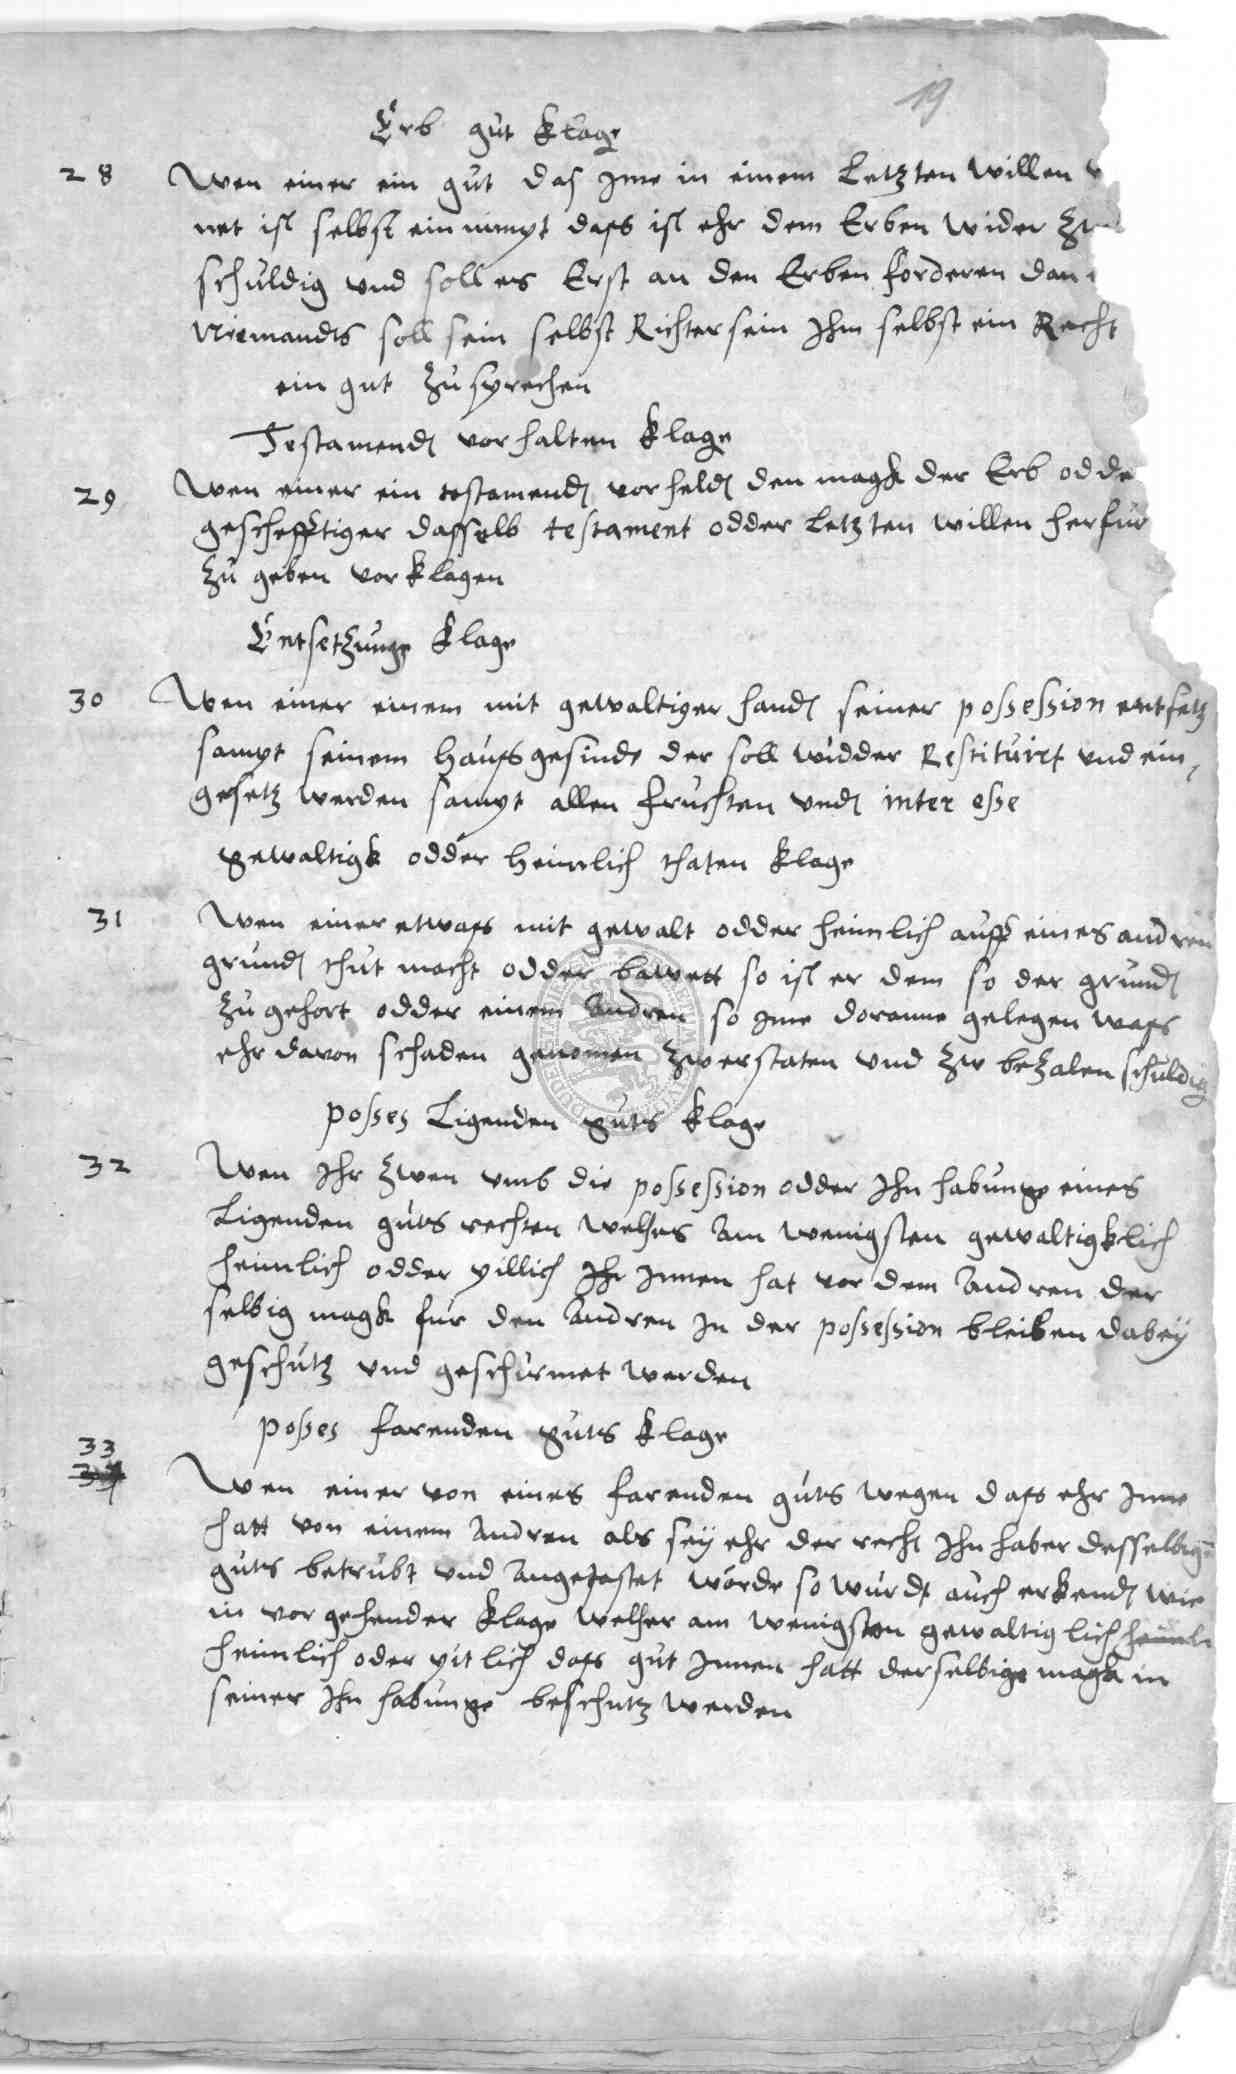 19
Erb gut klage
28 Wen einer ein gut das Ime in einem Letzten willen
net ist selbst einnimpt dass ist ehr dem Erben wider
schuldig vnd soll es Erst an den Erben forderen dan
Niemandts soll sein selbst Richter sein Ihm selbst ein Recht
ein gut zu sprechen
Testamend vorhalten klage
29 Wen einer ein testamend vorheld den magk der Erb odde
gescheftiger dasselb testament odder Letzten willen herfur
zu geben vorklagen
Entsetzunge klage
30 Wen einer einem mit gewaltiger hand seiner possession entsetz
sampt seinem haussgesinde der soll widder Restituirt vnd ein,
gesetz werden sampt allen fruchten vnd inter esse
gewaltigk odder heimlich thaten klage
31 Wen einer etwass mit gewalt odder heimlich auff eines andren
grund thut macht odder bawett so ist er dem so der grund
zugehort odder einem Andren so Ime doranne gelegen wass
ehr davon schaden genomen zw erstaten vnd zw bezalen schuldig
posses Ligenden guts klage
32 Wen Ihr zwen vmb die possession odder Ihnhabunge eines
Ligenden guts rechten welhes Am wenigsten gewaltigklich
heimlich odder pillich Ihr Innen hat vor dem Andren der
selbig magk fur den Andren In der possession bleiben dabey
geschutz vnd geschurmet werden
posses farenden guts klage
33
Wen einer von eines farenden guts wegen dass ehr Inne
hatt von einem Andren als sey ehr der recht Ihnhaber desselbigen
guts betrubt vnd Angetastet worde so wurdt auch erkend wie
in vorgehender klage welher am wenigsten gewaltiglich heimli
heimlich oder pitlich dass gut Innen hatt derselbige magk in
seiner Ihnhabunge beschutz werden